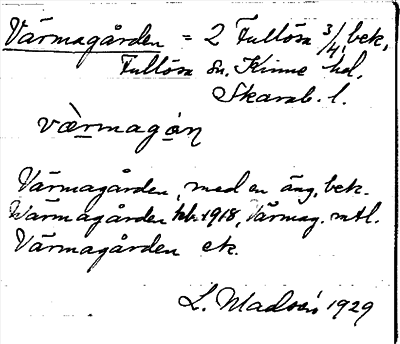 Värmagården = 2 Fullösa 3/4, bek.
Fullösa sn. Kinne hd.
Skarab. l.
værmagɑ̊ṇ
Värmagården, med en äng, bek.
Värmagården hb. 1918, Värmag. mtl.
Värmagården ek.
L. Madsén 1929